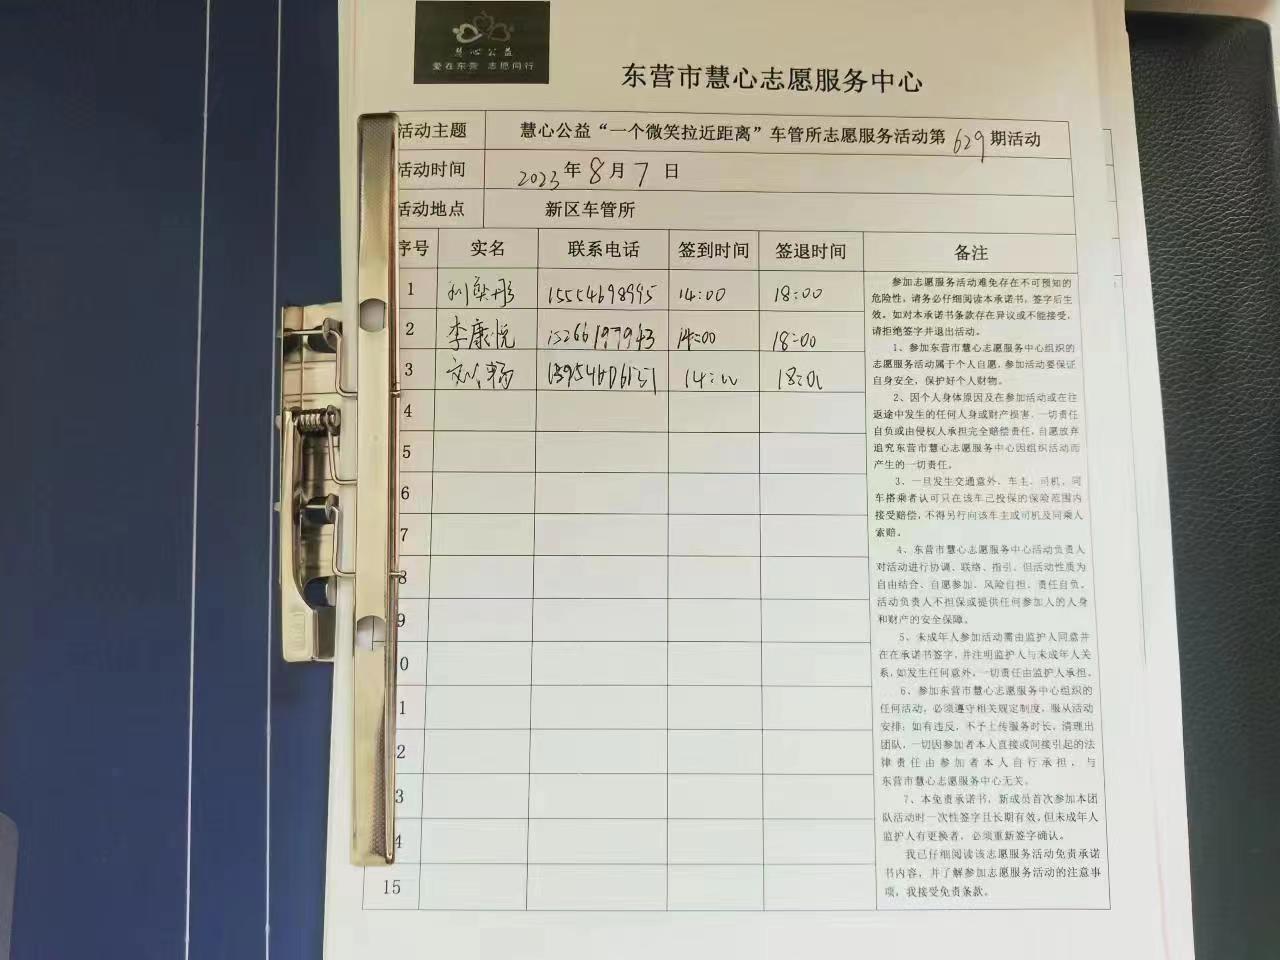 慧心公益
爱在东营 志愿同行
东营市慧心志愿服务中心
活动主题 慧心公益“一个微笑拉近距离”车管所志愿服务活动第629期活动
活动时间 2023年8月7日
活动地点 新区车管所
序号 实名 联系电话 签到时间 签退时间 备注
1 15554698995 14:00 18:00
2 李康悦 15266197943 14:00 18:00
3 14:00 18:00
4
5
6
7
8
9
0
1
2
3
4
15
参加志愿服务活动难免存在不可预知的
危险性，请务必仔细阅读本承诺书，签字后生
效。如对本承诺书条款存在异议或不能接受，
请拒绝签字并退出活动。
1、参加东营市慧心志愿服务中心组织的
志愿服务活动属于个人自愿，参加活动要保证
自身安全，保护好个人财物。
2、因个人身体原因及在参加活动或在往
返途中发生的任何人身或财产损害，一切责任
自负或由侵权人承担完全赔偿责任，自愿放弃
追究东营市慧心志愿服务中心因组织活动而
产生的一切责任。
3、一旦发生交通意外，车主、司机、同
车搭乘者认可只在该车已投保的保险范围内
接受赔偿，不得另行向该车主或司机及同乘人
索赔。
4、东营市慧心志愿服务中心活动负责人
对活动进行协调、联络、指引，但活动性质为
自由结合、自愿参加、风险自担、责任自负。
活动负责人不担保或提供任何参加人的人身
和财产的安全保障。
5、未成年人参加活动需由监护人同意并
在在承诺书签字，并注明监护人与未成年人关
系，如发生任何意外，一切责任由监护人承担。
6、参加东营市慧心志愿服务中心组织的
任何活动，必须遵守相关规定制度，服从活动
安排；如有违反，不予上传服务时长，清理出
团队，一切因参加者本人直接或间接引起的法
律责任由参加者本人自行承担，与
东营市慧心志愿服务中心无关。
7、本免责承诺书，新成员首次参加本团
队活动时一次性签字且长期有效，但未成年人
监护人有更换者，必须重新签字确认。
我已仔细阅读该志愿服务活动免责承诺
书内容，并了解参加志愿服务活动的注意事
项，我接受免责条款。